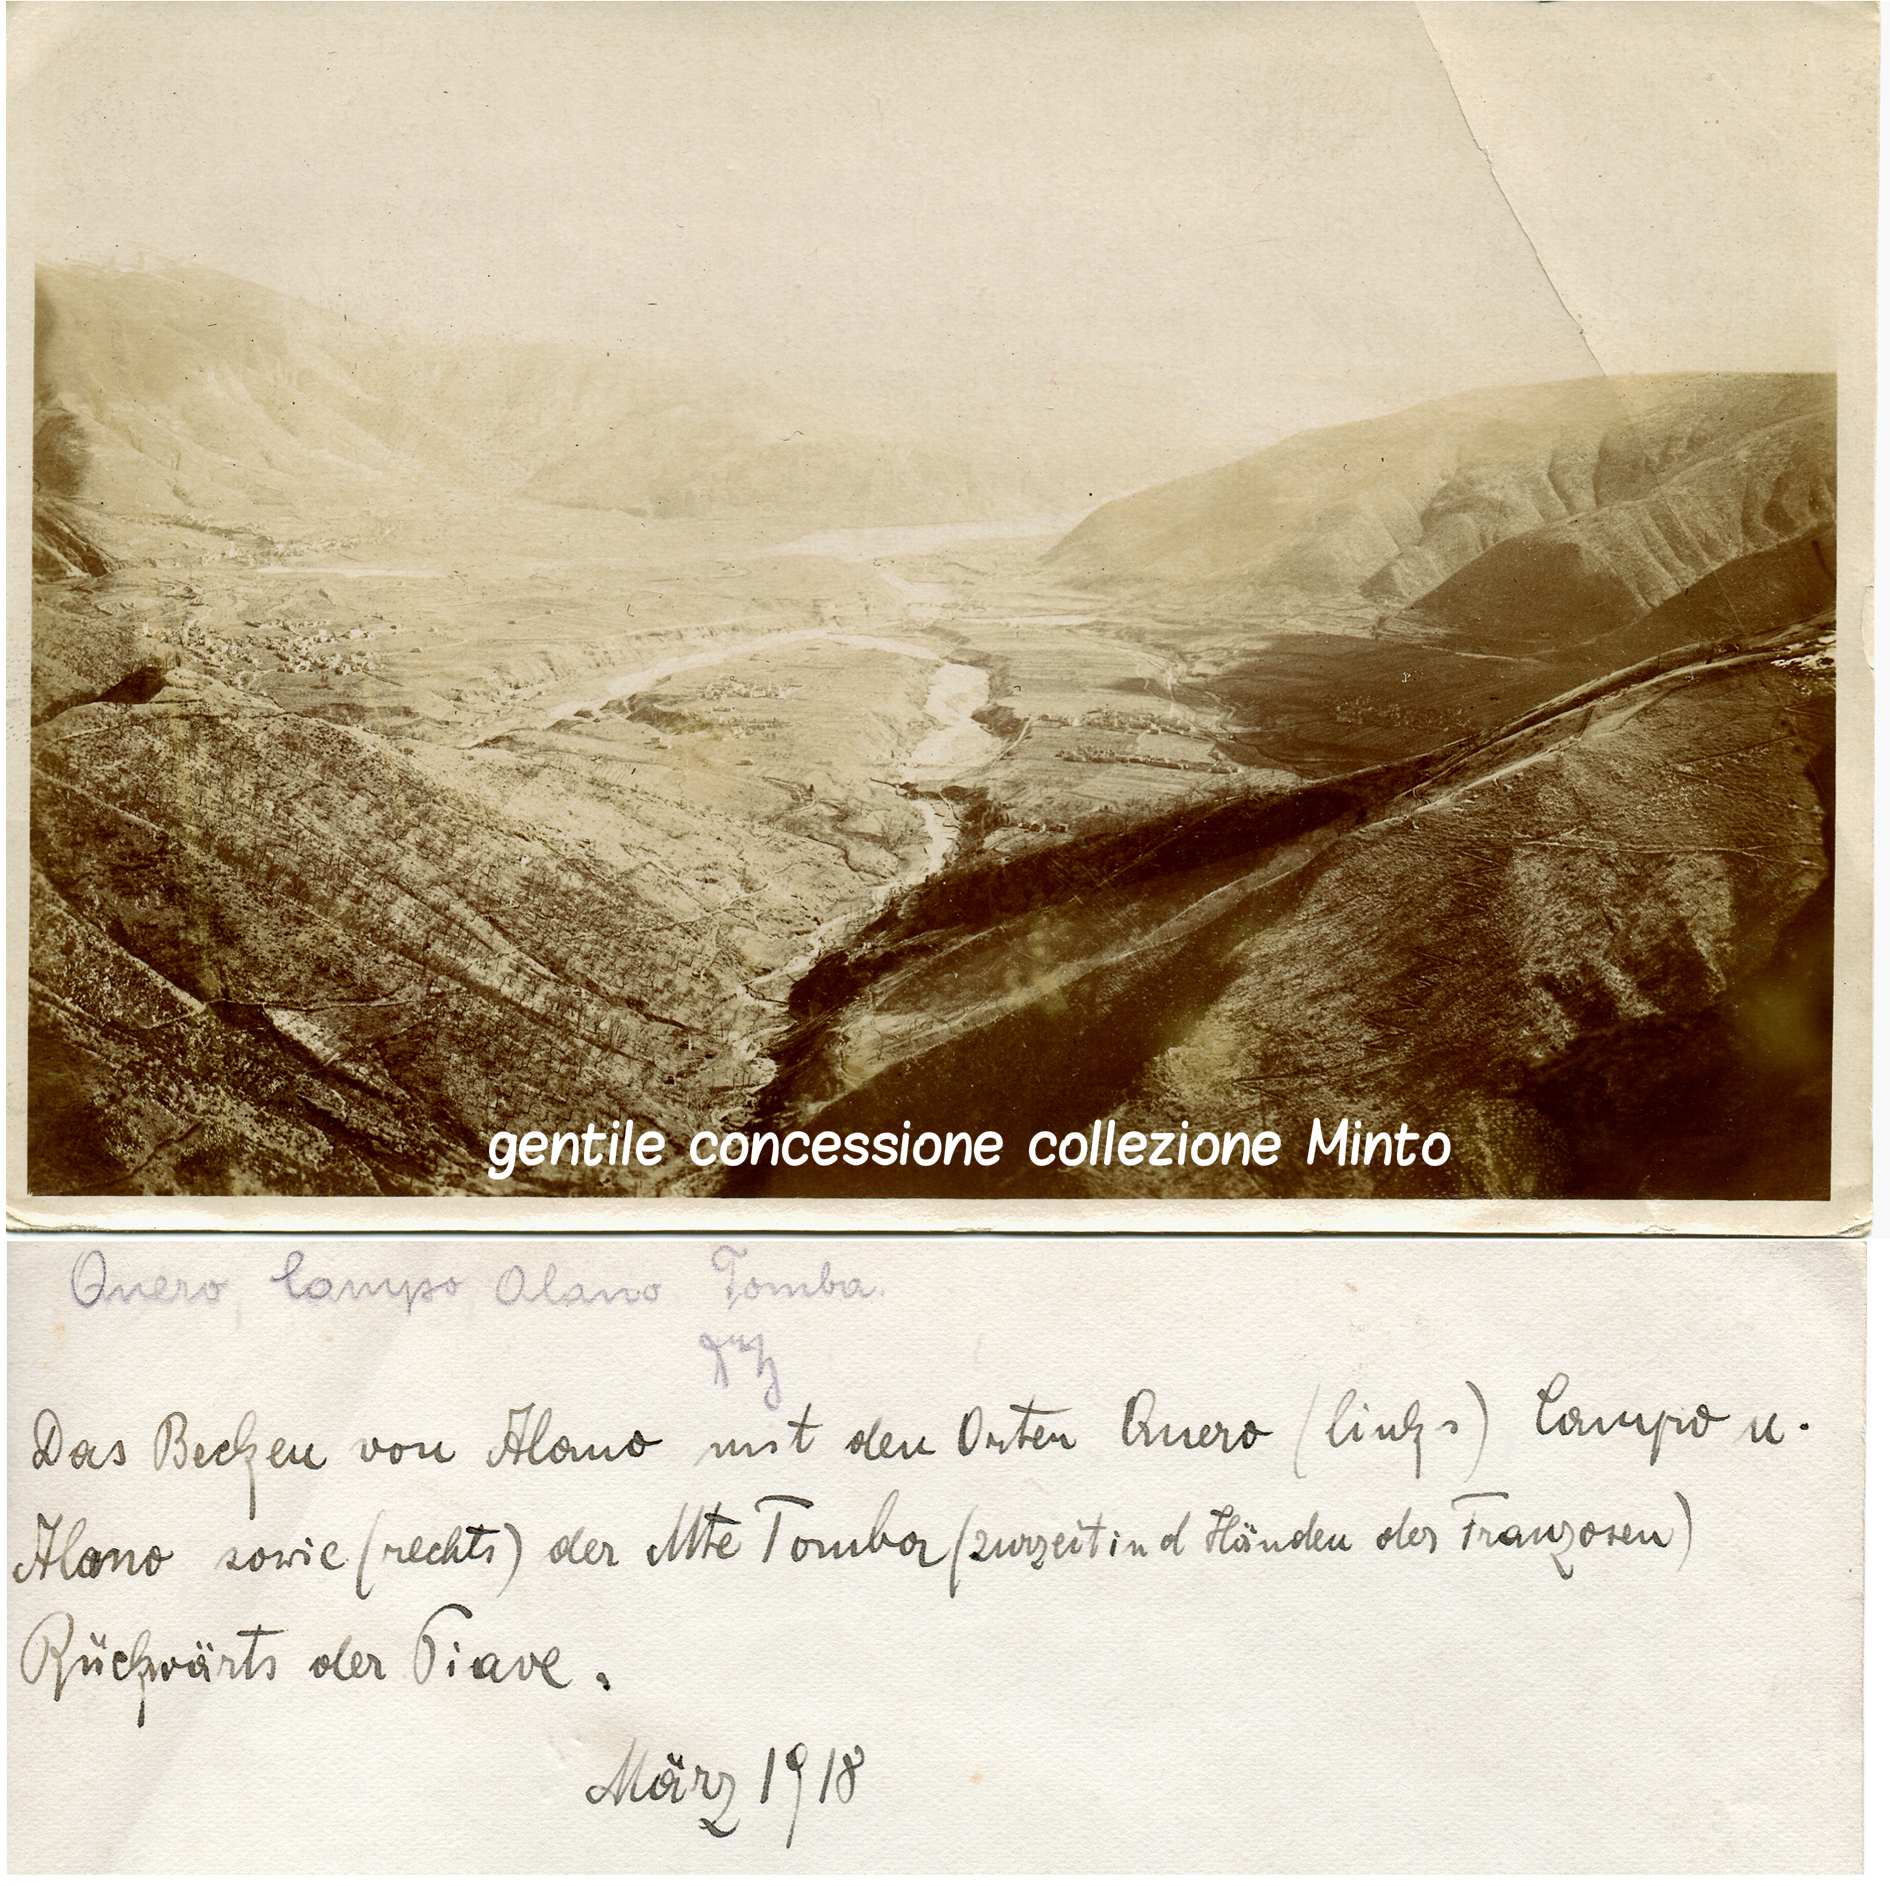 gentile concessione collezione Minto
Quero, Campo Alano Tomba.
Das Becken von Alano mit den Orten Quero (links) Campo u.
Alano sowie (rechts) der Mte Tomba (zurzeit in d Händen der Franzosen)
Rückwärts der Piave.
März 1918